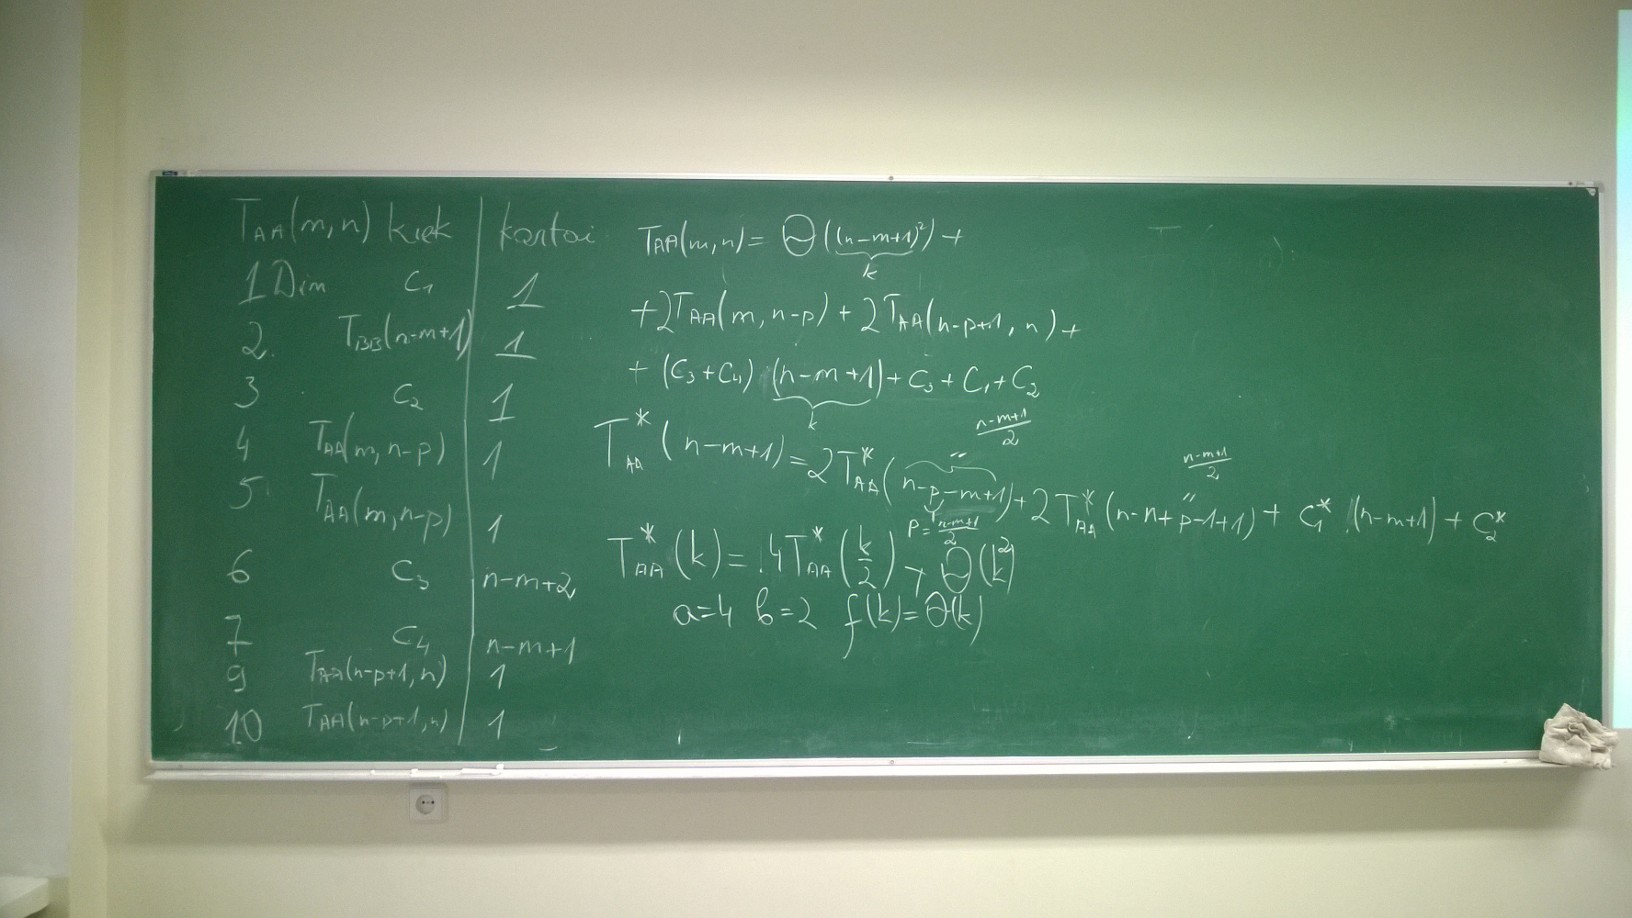 T_AA(m,n) kiek | kartai
1 Dim C₁ | 1
2. T_BB(n-m+1) | 1
3 C₂ | 1
4 T_AA(m,n-p) | 1
5 T_AA(m,n-p) | 1
6 C₃ | n-m+2
7 C₄ | n-m+1
9 T_AA(n-p+1,n) | 1
10 T_AA(n-p+1,n) | 1
T_AA(m,n) = Θ((n-m+1)²) +
k
+ 2T_AA(m, n-p) + 2T_AA(n-p+1, n) +
+ (C₃+C₄) (n-m+1) + C₃ + C₁ + C₂
k
n-m+1/2
n-m+1/2
T*_AA(n-m+1) = 2T*_AA(n-p-m+1) + 2T*_AA(n-n+p-1+1) + C₁* (n-m+1) + C₂*
p = n-m+1/2
T*_AA(k) = 4T*_AA(k/2) + Θ(k²)
a=4 b=2 f(k)=Θ(k)